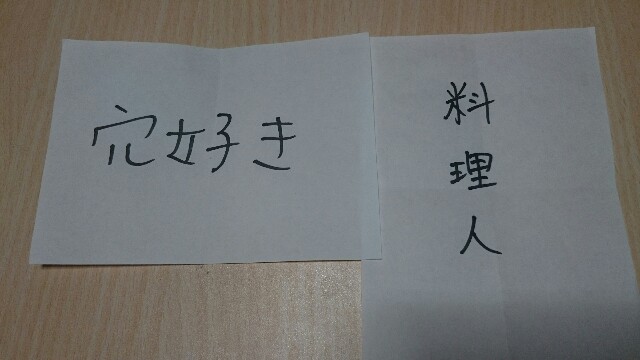 穴好き
料理人